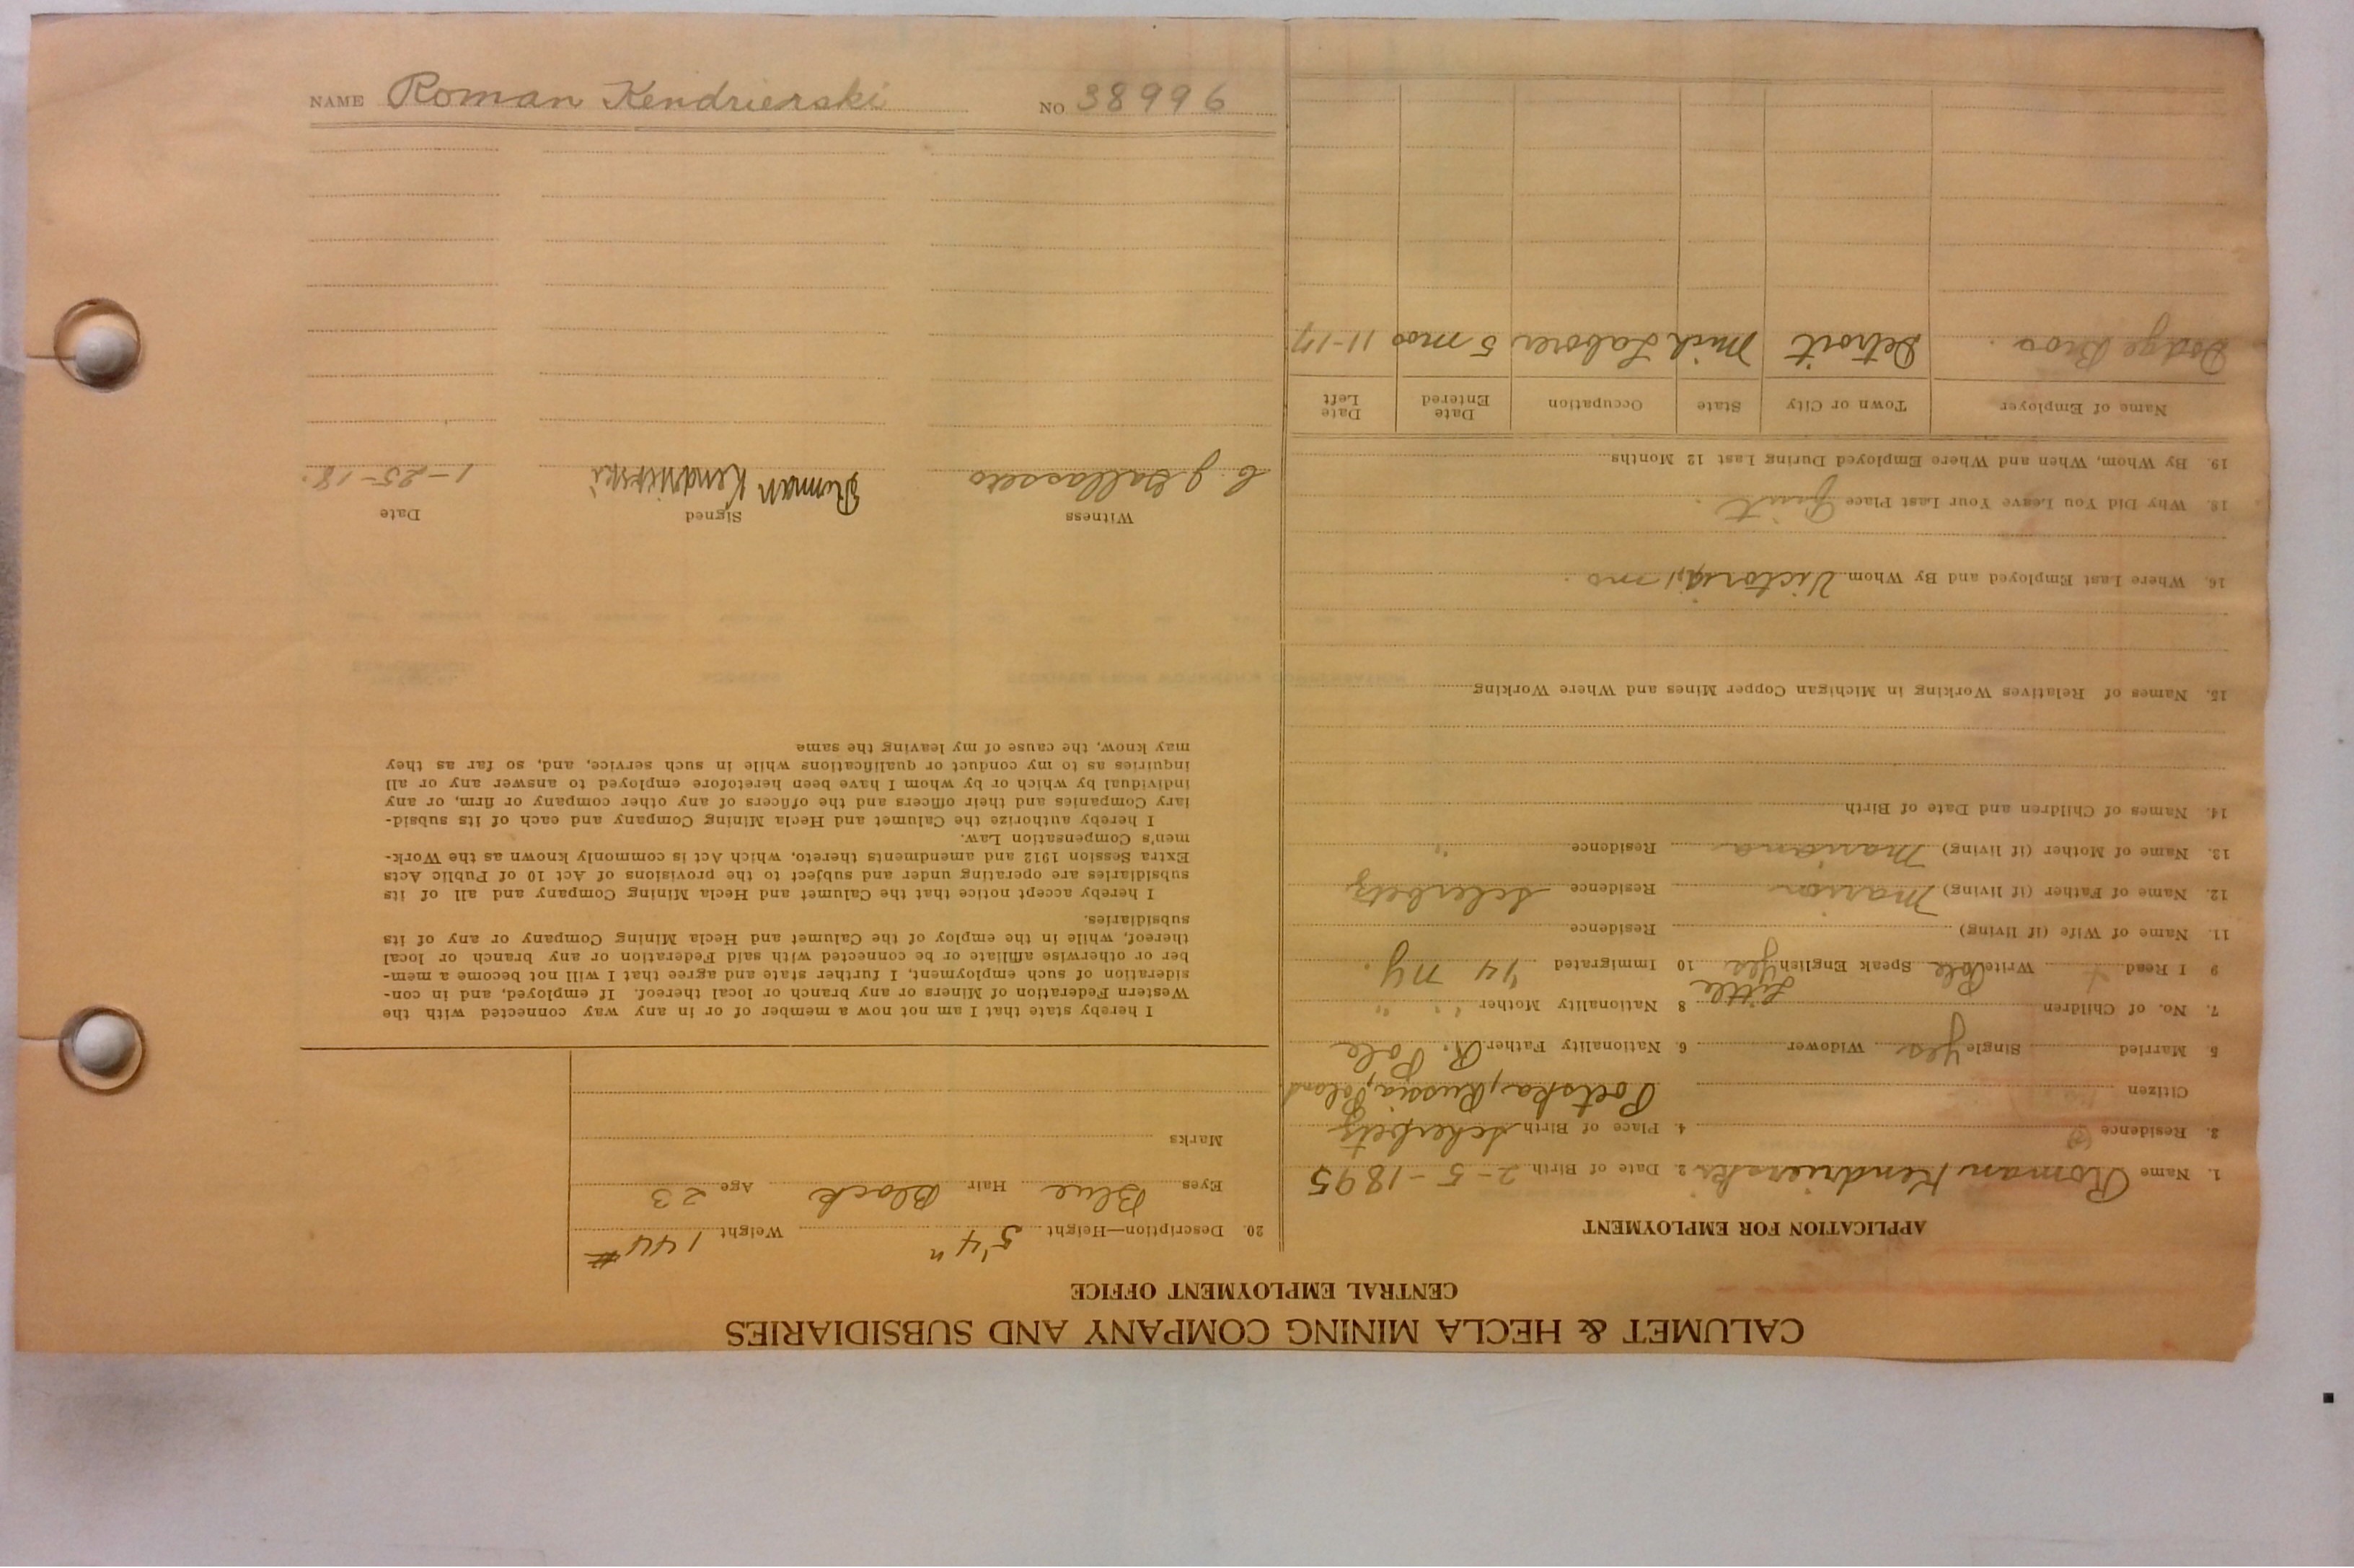 NAME Roman Kendzierski NO 38996
CALUMET & HECLA MINING COMPANY AND SUBSIDIARIES
CENTRAL EMPLOYMENT OFFICE
APPLICATION FOR EMPLOYMENT
1. Name Roman Kendzierski 2. Date of Birth 2-5-1895
3. Residence 4. Place of Birth
Citizen Russia, Poland
5 Married Single Yes Widower 6. Nationality Father R. Pole
7. No. of Children 8 Nationality Mother " "
9 I Read + Write Pole Speak English Little Yes 10 Immigrated '14 NY.
11. Name of Wife (if living) Residence
12. Name of Father (if living) Marion Residence
13. Name of Mother (if living) Mariana Residence "
14. Names of Children and Date of Birth
15. Names of Relatives Working in Michigan Copper Mines and Where Working
16. Where Last Employed and By Whom Victoria, 1 mo.
18. Why Did You Leave Your Last Place Quit.
19. By Whom, When and Where Employed During Last 12 Months
Name of Employer Town or City State Occupation Date Entered Date Left
Dodge Bros. Detroit Mich Laborer 5 mos 11-17
20. Description—Height 5'4" Weight 144#
Eyes Blue Hair Black Age 23
Marks
I hereby state that I am not now a member of or in any way connected with the
Western Federation of Miners or any branch or local thereof. If employed, and in con-
sideration of such employment, I further state and agree that I will not become a mem-
ber or otherwise affiliate or be connected with said Federation or any branch or local
thereof, while in the employ of the Calumet and Hecla Mining Company or any of its
subsidiaries.
I hereby accept notice that the Calumet and Hecla Mining Company and all of its
subsidiaries are operating under and subject to the provisions of Act 10 of Public Acts
Extra Session 1912 and amendments thereto, which Act is commonly known as the Work-
men's Compensation Law.
I hereby authorize the Calumet and Hecla Mining Company and each of its subsid-
iary Companies and their officers and the officers of any other company or firm, or any
individual by which or by whom I have been heretofore employed to answer any or all
inquiries as to my conduct or qualifications while in such service, and, so far as they
may know, the cause of my leaving the same
Witness Signed Date
Roman Kendzierski 1-25-18.